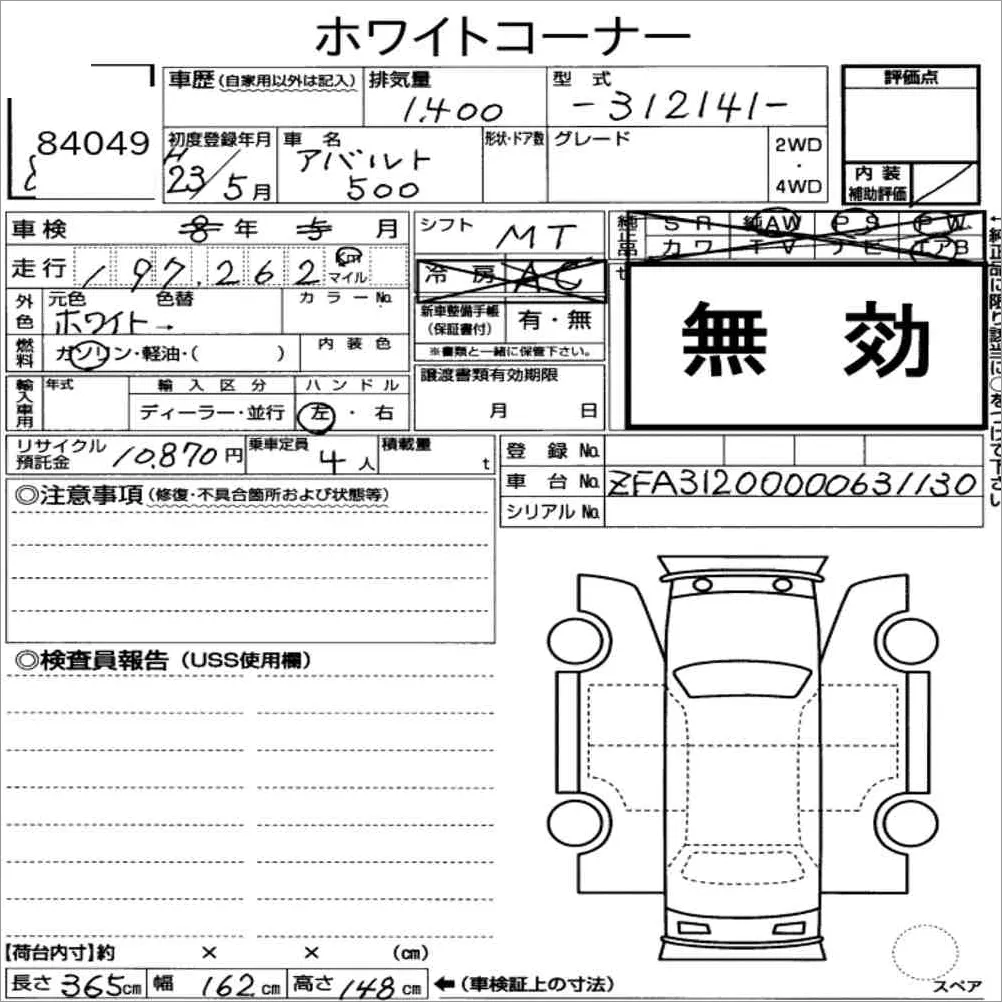 ホワイトコーナー
84049
車歴(自家用以外は記入)
排気量
1,400
型式
-312141-
評価点
初度登録年月
H23/5月
車名
アバルト
500
形状・ドア数
グレード
2WD
・
4WD
内装
補助評価
車検 8年 5月
シフト
MT
純正品
SR 純AW PS PW
カワ TV ナビ エアB
走行 197,262 Km
マイル
冷房 AC
外色
元色 色替 カラーNo.
ホワイト→
新車整備手帳
(保証書付)
有・無
※書類と一緒に保管下さい。
無効
←純正品に限り該当に○をつけて下さい
燃料
ガソリン・軽油・( )
内装色
輸入車用
年式
輸入区分
ディーラー・並行
ハンドル
左・右
譲渡書類有効期限
月 日
リサイクル
預託金
10,870円
乗車定員
4人
積載量
t
登録No.
車台No. ZFA31200000631130
シリアルNo.
◎注意事項(修復・不具合箇所および状態等)
◎検査員報告(USS使用欄)
【荷台内寸】約 × × (cm)
長さ 365cm 幅 162cm 高さ 148cm ←(車検証上の寸法)
スペア